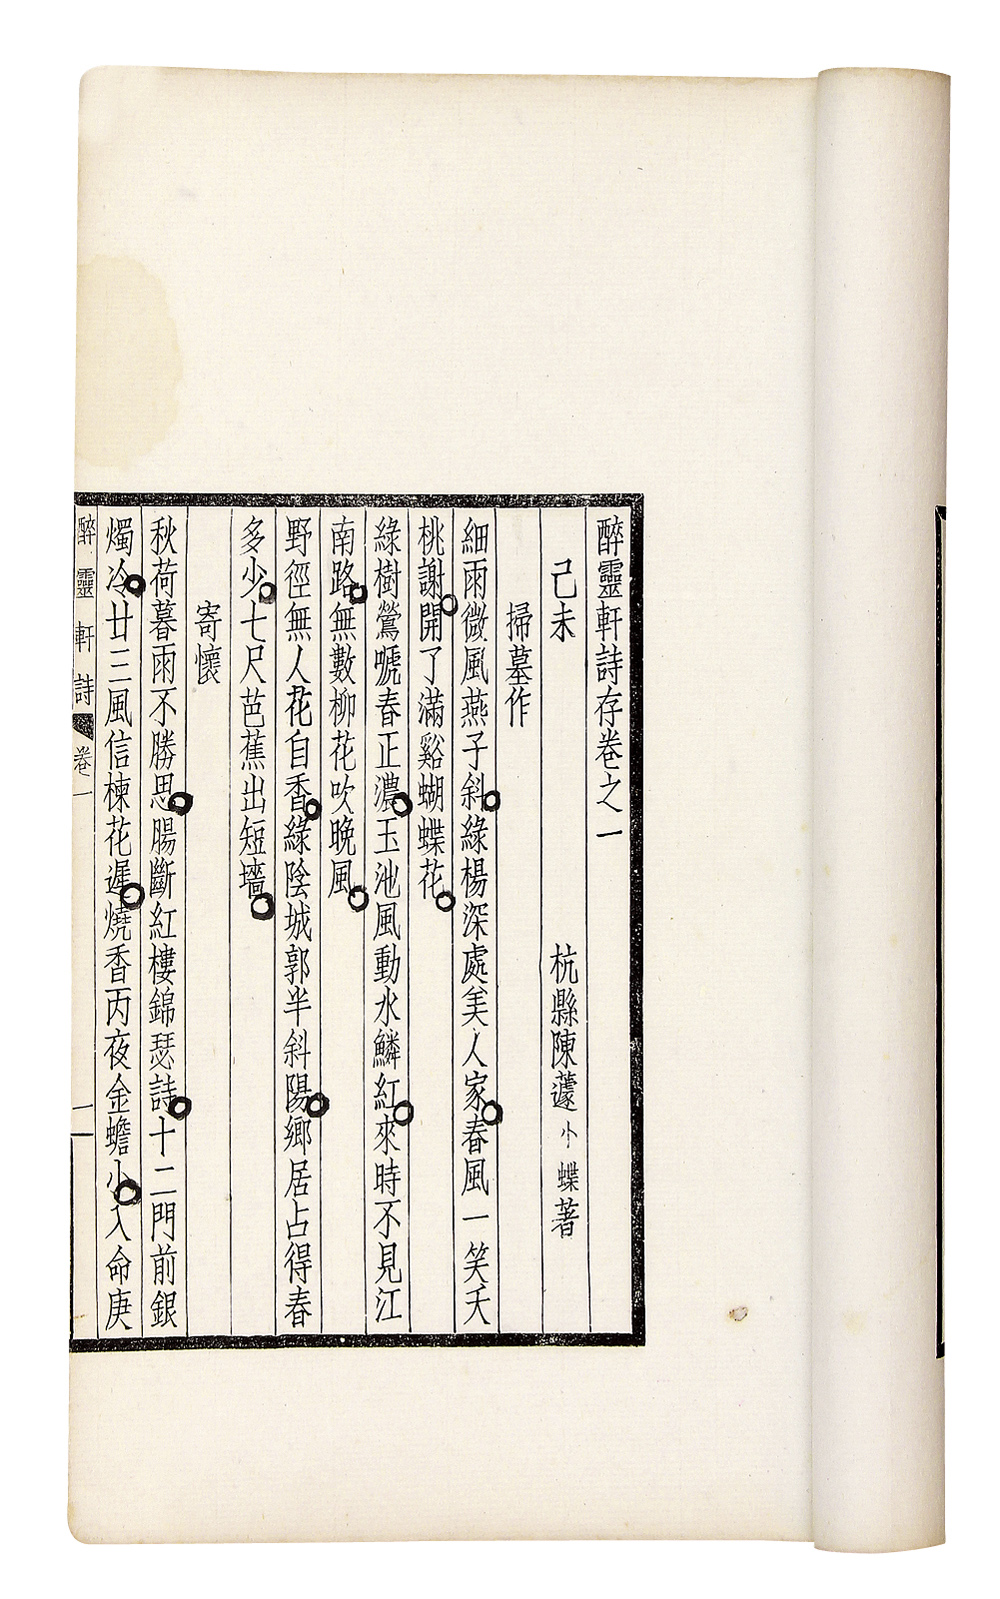 醉靈軒詩存卷之一
己未 杭縣陳蘧小蝶著
掃墓作
細雨微風燕子斜綠楊深處美人家春風一笑夭
桃謝開了滿谿蝴蝶花
綠樹鶯嗁春正濃玉池風動水鱗紅來時不見江
南路無數柳花吹晚風
野徑無人花自香綠陰城郭半斜陽鄉居占得春
多少七尺芭蕉出短墻
寄懷
秋荷暮雨不勝思腸斷紅樓錦瑟詩十二門前銀
燭冷廿三風信楝花遲燒香丙夜金蟾小入命庚
醉靈軒詩 卷一 一